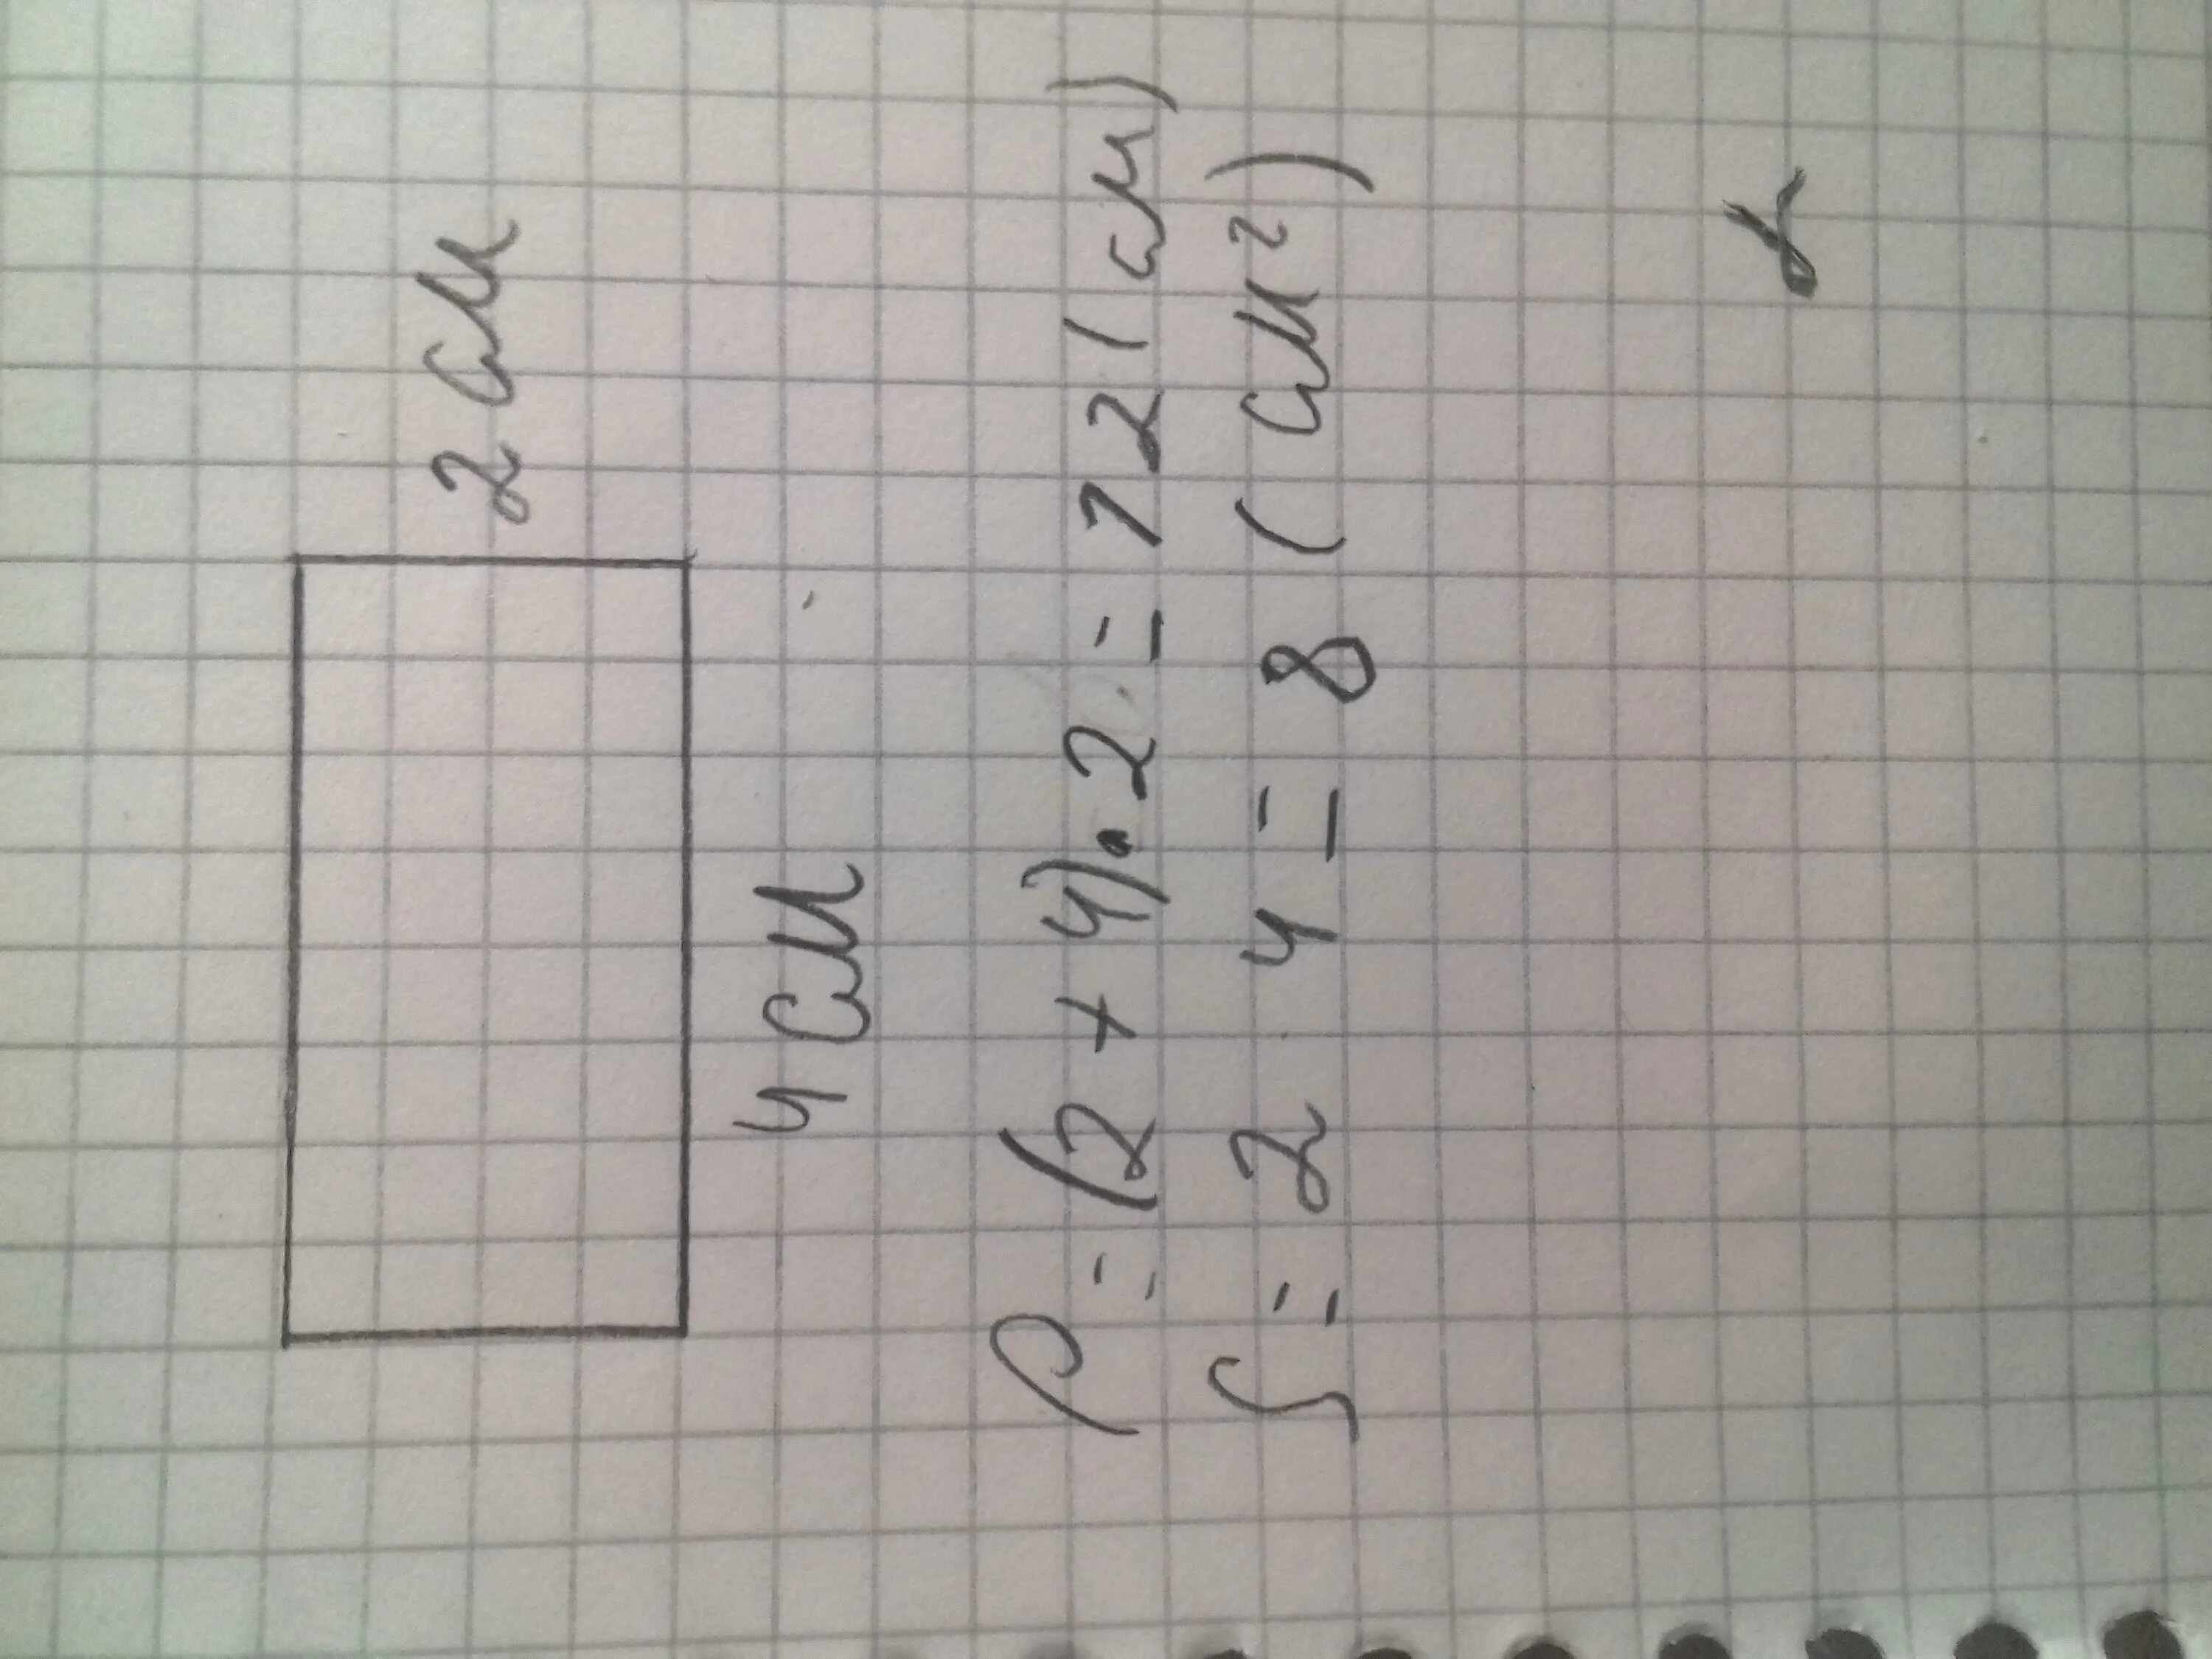 2 см
4 см
P = (2 + 4) • 2 = 12 (см)
S = 2 4 = 8 (см²)